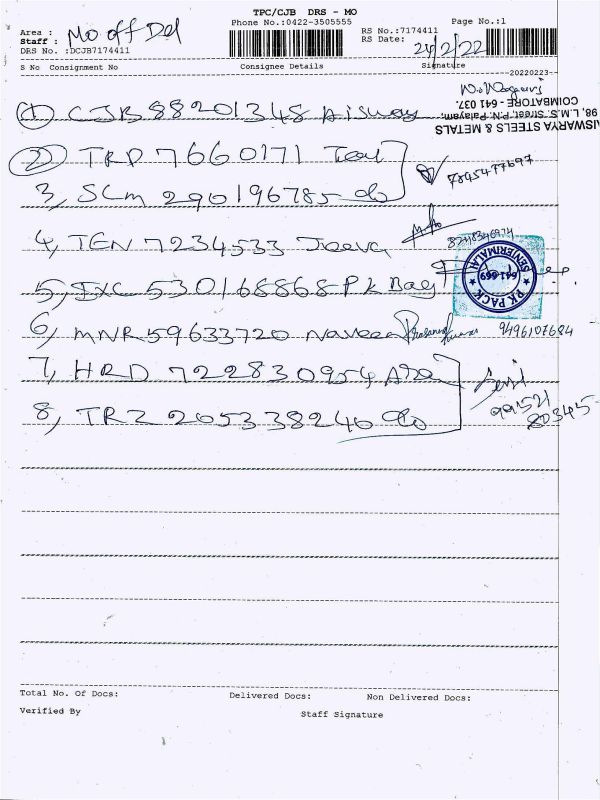 TPC/CJB DRS - MO
Phone No.:0422-3505555 Page No.:1
Area : Mo off Del
Staff :
DRS No. :DCJB7174411
RS No.:7174411
RS Date: 24/2/22
S No Consignment No Consignee Details Signature
20220223
98, L.M.L.S. Street, P.N. Palayam,
COIMBATORE - 641 037.
AISWARYA STEELS & METALS
1 CJB 88201348 Aisway
2 TRP 7660171
7845477697
3, SCM 290196785 do
4, TEN 7234533 Jeeva
8248346974
5, 530168868 PK Bag
PK PACK
641-669
SENJERIMALAI
6, MNR 59633720 Naveen Prasanna Kumar 9496107684
7, HRD 722830954
8, TRZ 205338240 do
991521
80345
Total No. Of Docs: Delivered Docs: Non Delivered Docs:
Verified By Staff Signature